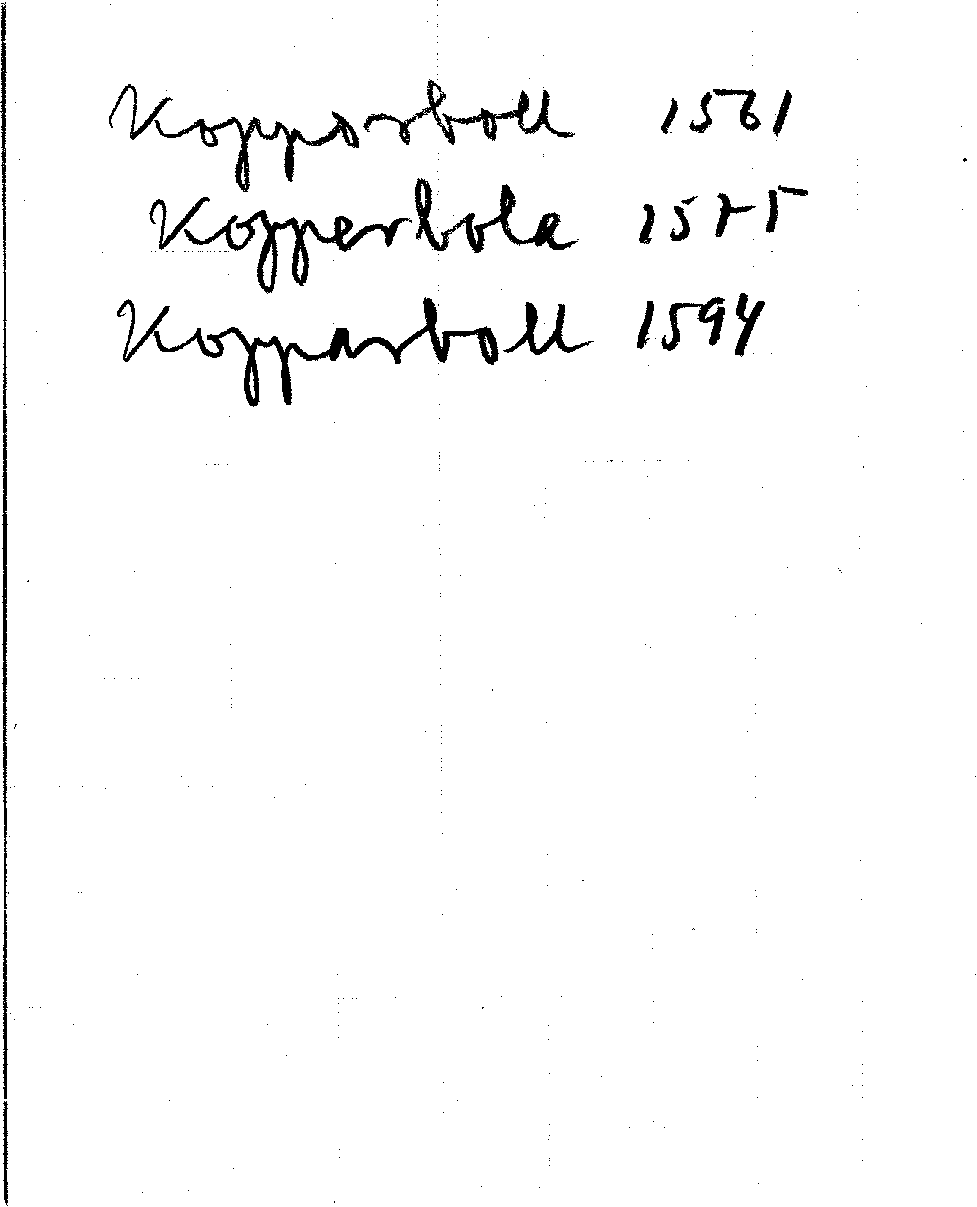 Kopporboll 1561
Kopperbola 1575
Kopparboll 1594